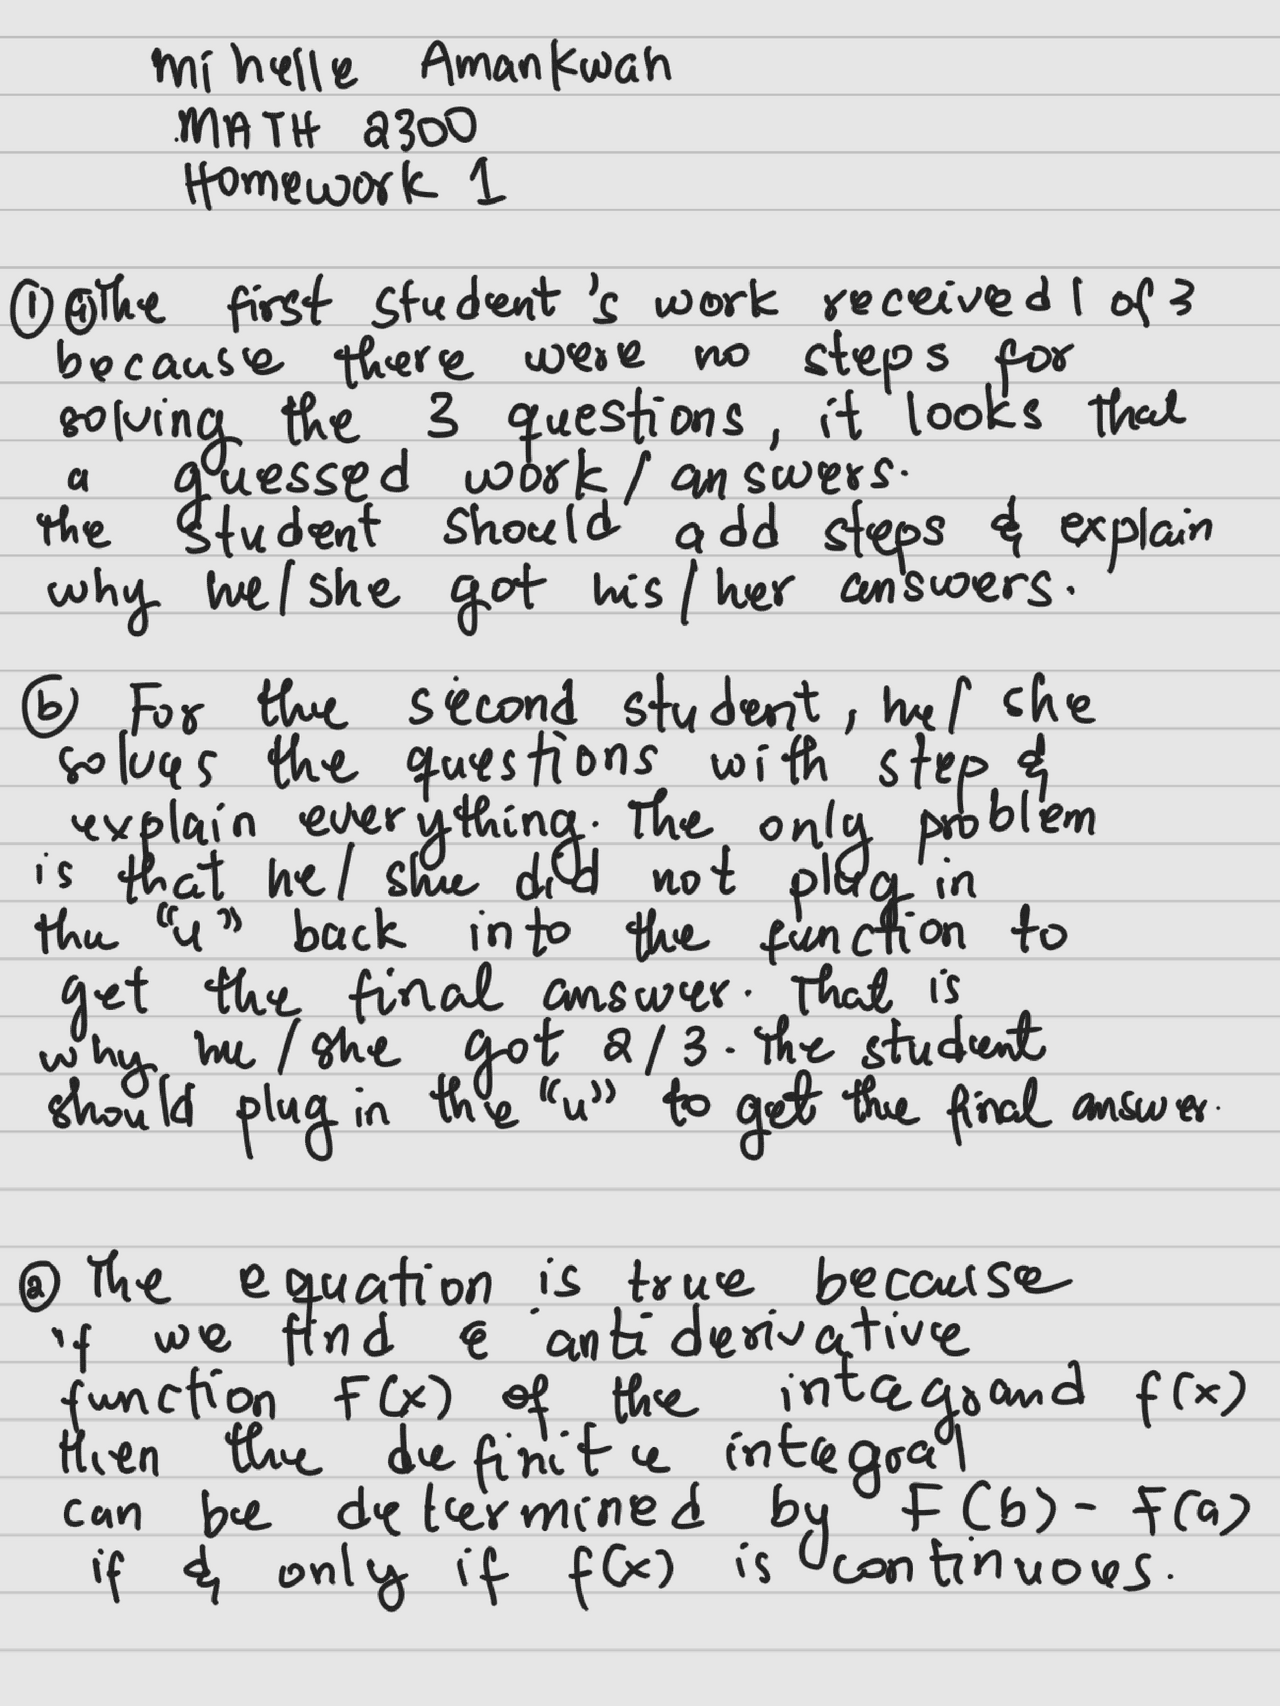 Mihelle Amankwah
MATH 2300
Homework 1
① ⓐ The first student's work received 1 of 3
because there were no steps for
solving the 3 questions, it looks that
a guessed work / answers.
The student should add steps & explain
why he/she got his/her answers.
ⓑ For the second student, he/she
solves the questions with step &
explain everything. The only problem
is that he/she did not plug in
the "u" back into the function to
get the final answer. That is
why he/she got 2/3. The student
should plug in the "u" to get the final answer.
② The equation is true because
if we find antiderivative
function F(x) of the integrand f(x)
then the definite integral
can be determined by F(b) - F(a)
if & only if f(x) is continuous.